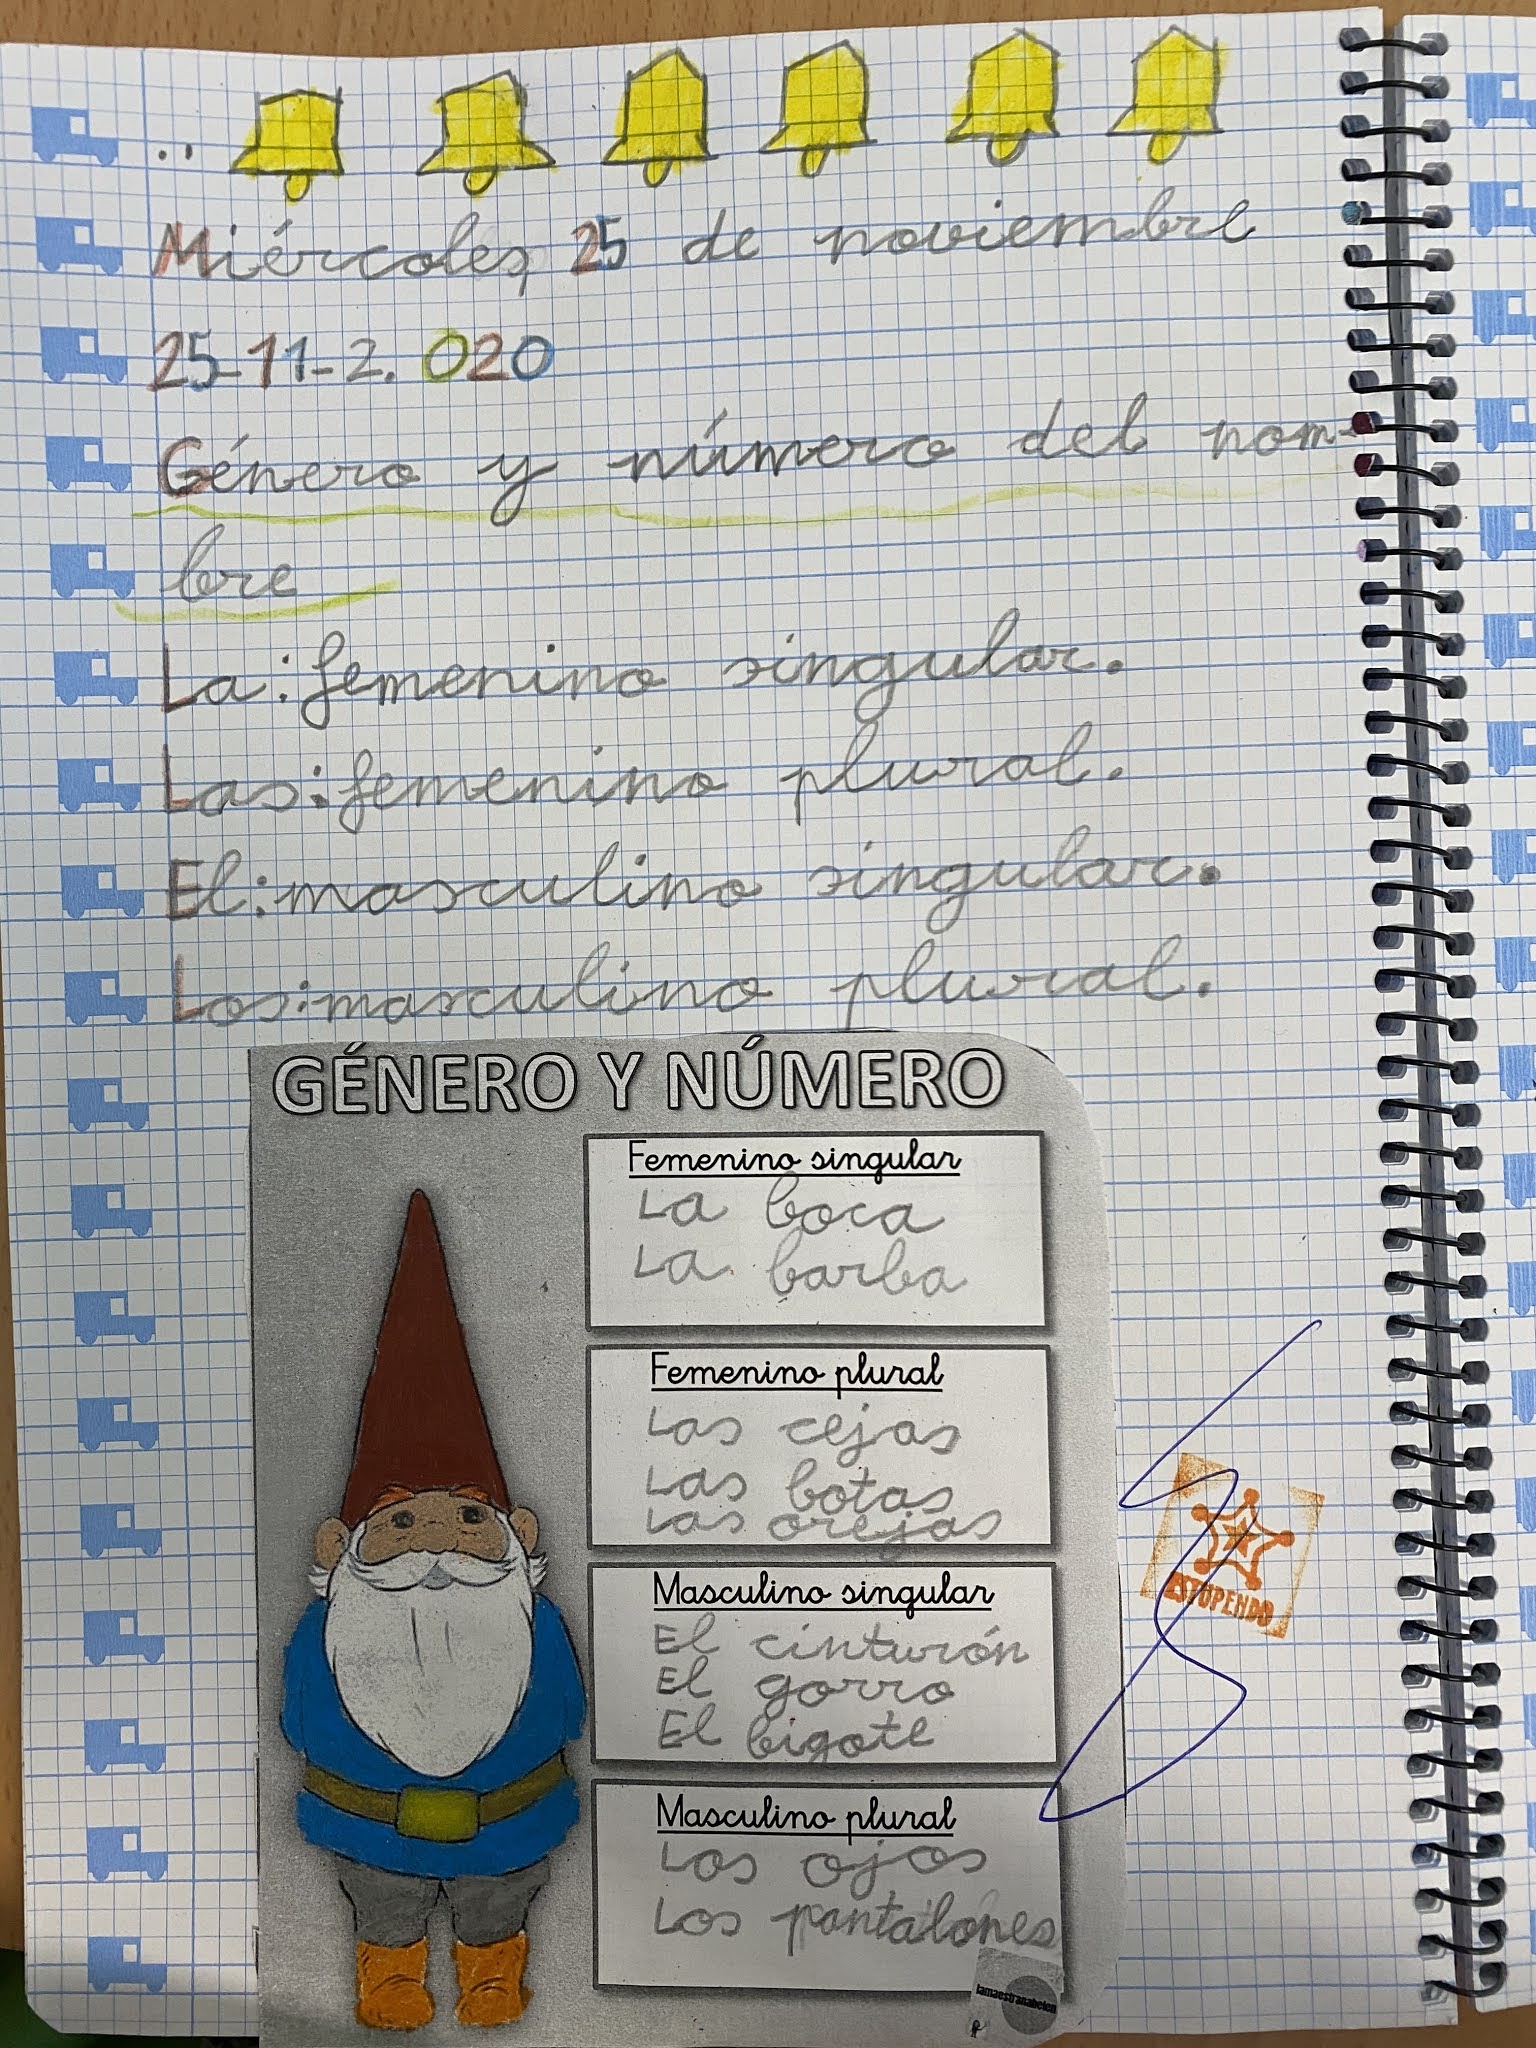 Miércoles, 25 de noviembre
25-11-2.020
Género y número del nom-
bre
La: femenino singular.
Las: femenino plural.
El: masculino singular.
Los: masculino plural.
GÉNERO Y NÚMERO
Femenino singular
La boca
La barba
Femenino plural
Las cejas
Las botas
Las orejas
Masculino singular
El cinturón
El gorro
El bigote
ESTUPENDO
Masculino plural
Los ojos
Los pantalones
lamaestranabelen